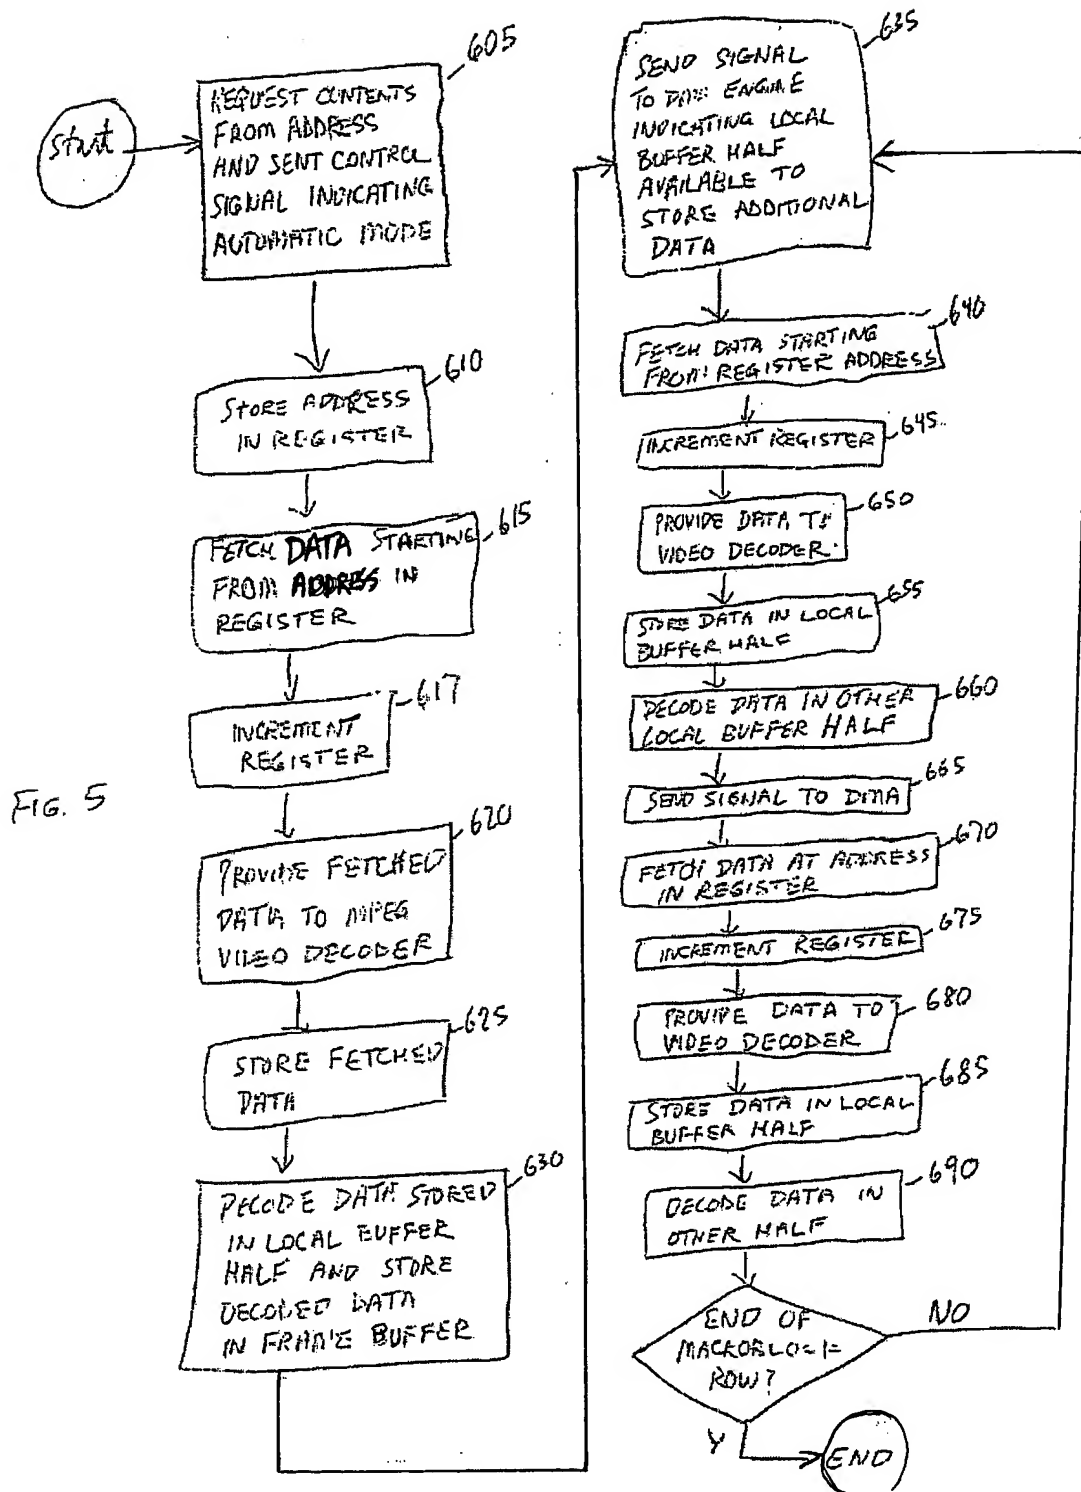 605
Start
REQUEST CONTENTS
FROM ADDRESS
AND SENT CONTROL
SIGNAL INDICATING
AUTOMATIC MODE
610
STORE ADDRESS
IN REGISTER
615
FETCH DATA STARTING
FROM ADDRESS IN
REGISTER
617
INCREMENT
REGISTER
FIG. 5
620
PROVIDE FETCHED
DATA TO MPEG
VIDEO DECODER
625
STORE FETCHED
DATA
630
DECODE DATA STORED
IN LOCAL BUFFER
HALF AND STORE
DECODED DATA
IN FRAME BUFFER
635
SEND SIGNAL
TO DMA ENGINE
INDICATING LOCAL
BUFFER HALF
AVAILABLE TO
STORE ADDITIONAL
DATA
640
FETCH DATA STARTING
FROM REGISTER ADDRESS
645
INCREMENT REGISTER
650
PROVIDE DATA TO
VIDEO DECODER
655
STORE DATA IN LOCAL
BUFFER HALF
660
DECODE DATA IN OTHER
LOCAL BUFFER HALF
665
SEND SIGNAL TO DMA
670
FETCH DATA AT ADDRESS
IN REGISTER
675
INCREMENT REGISTER
680
PROVIDE DATA TO
VIDEO DECODER
685
STORE DATA IN LOCAL
BUFFER HALF
690
DECODE DATA IN
OTHER HALF
END OF
ROW?
NO
Y
END